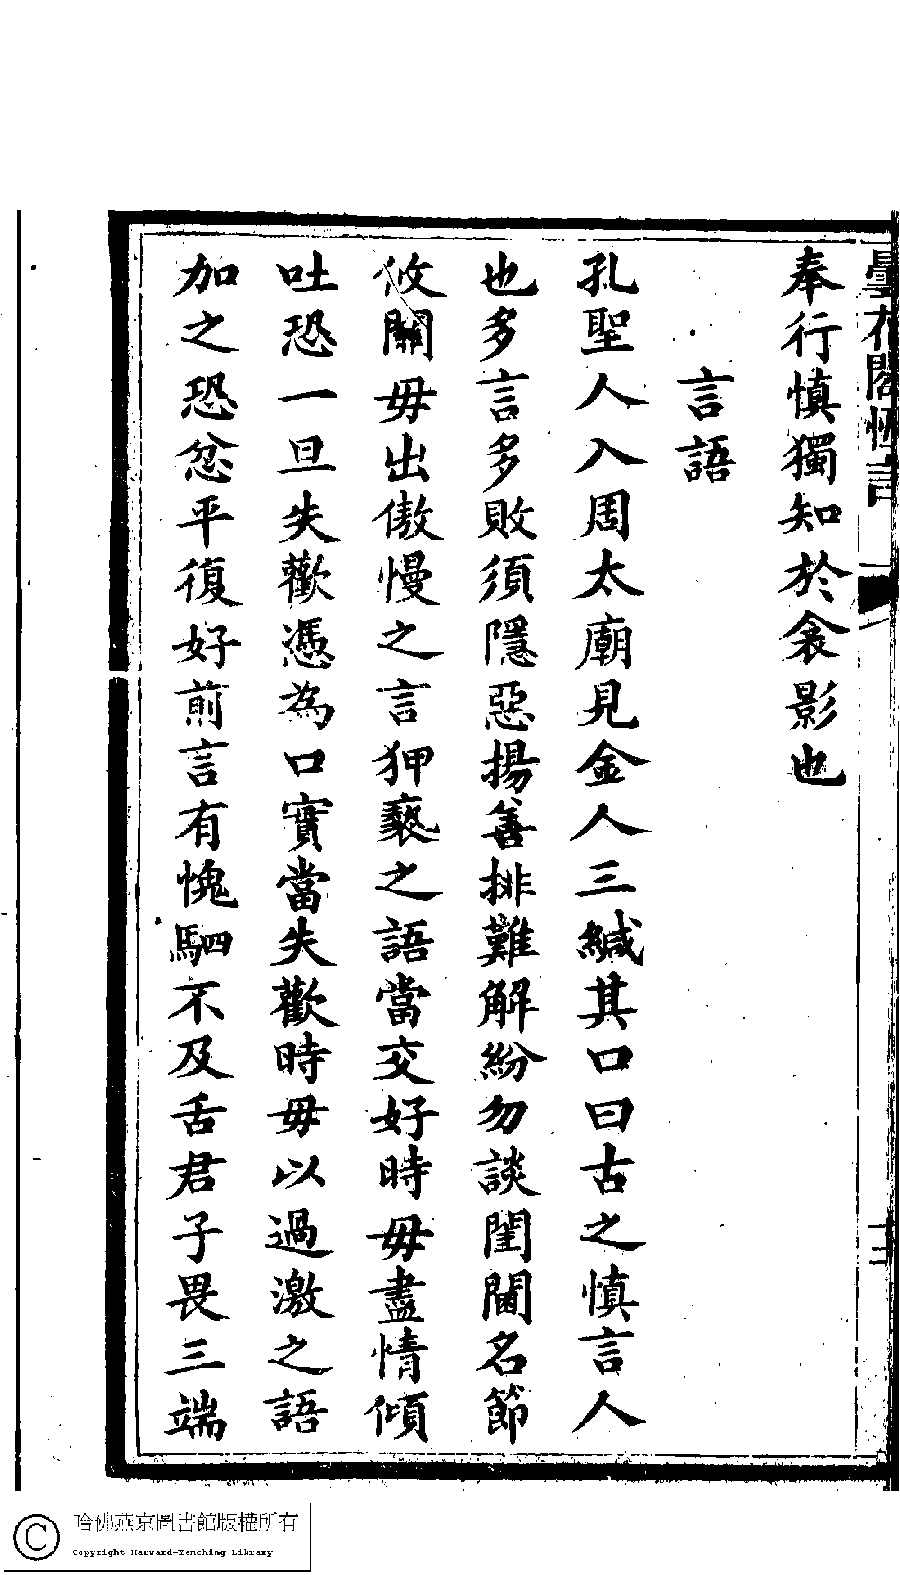 曇花閣恆言
十三
奉行慎獨知於衾影也
言語
孔聖人入周太廟見金人三緘其口曰古之慎言人
也多言多敗須隱惡揚善排難解紛勿談閨閫名節
攸關毋出傲慢之言狎褻之語當交好時毋盡情傾
吐恐一旦失歡憑為口實當失歡時毋以過激之語
加之恐忿平復好前言有愧駟不及舌君子畏三端
哈佛燕京圖書館版權所有
Copyright Harvard-Yenching Library